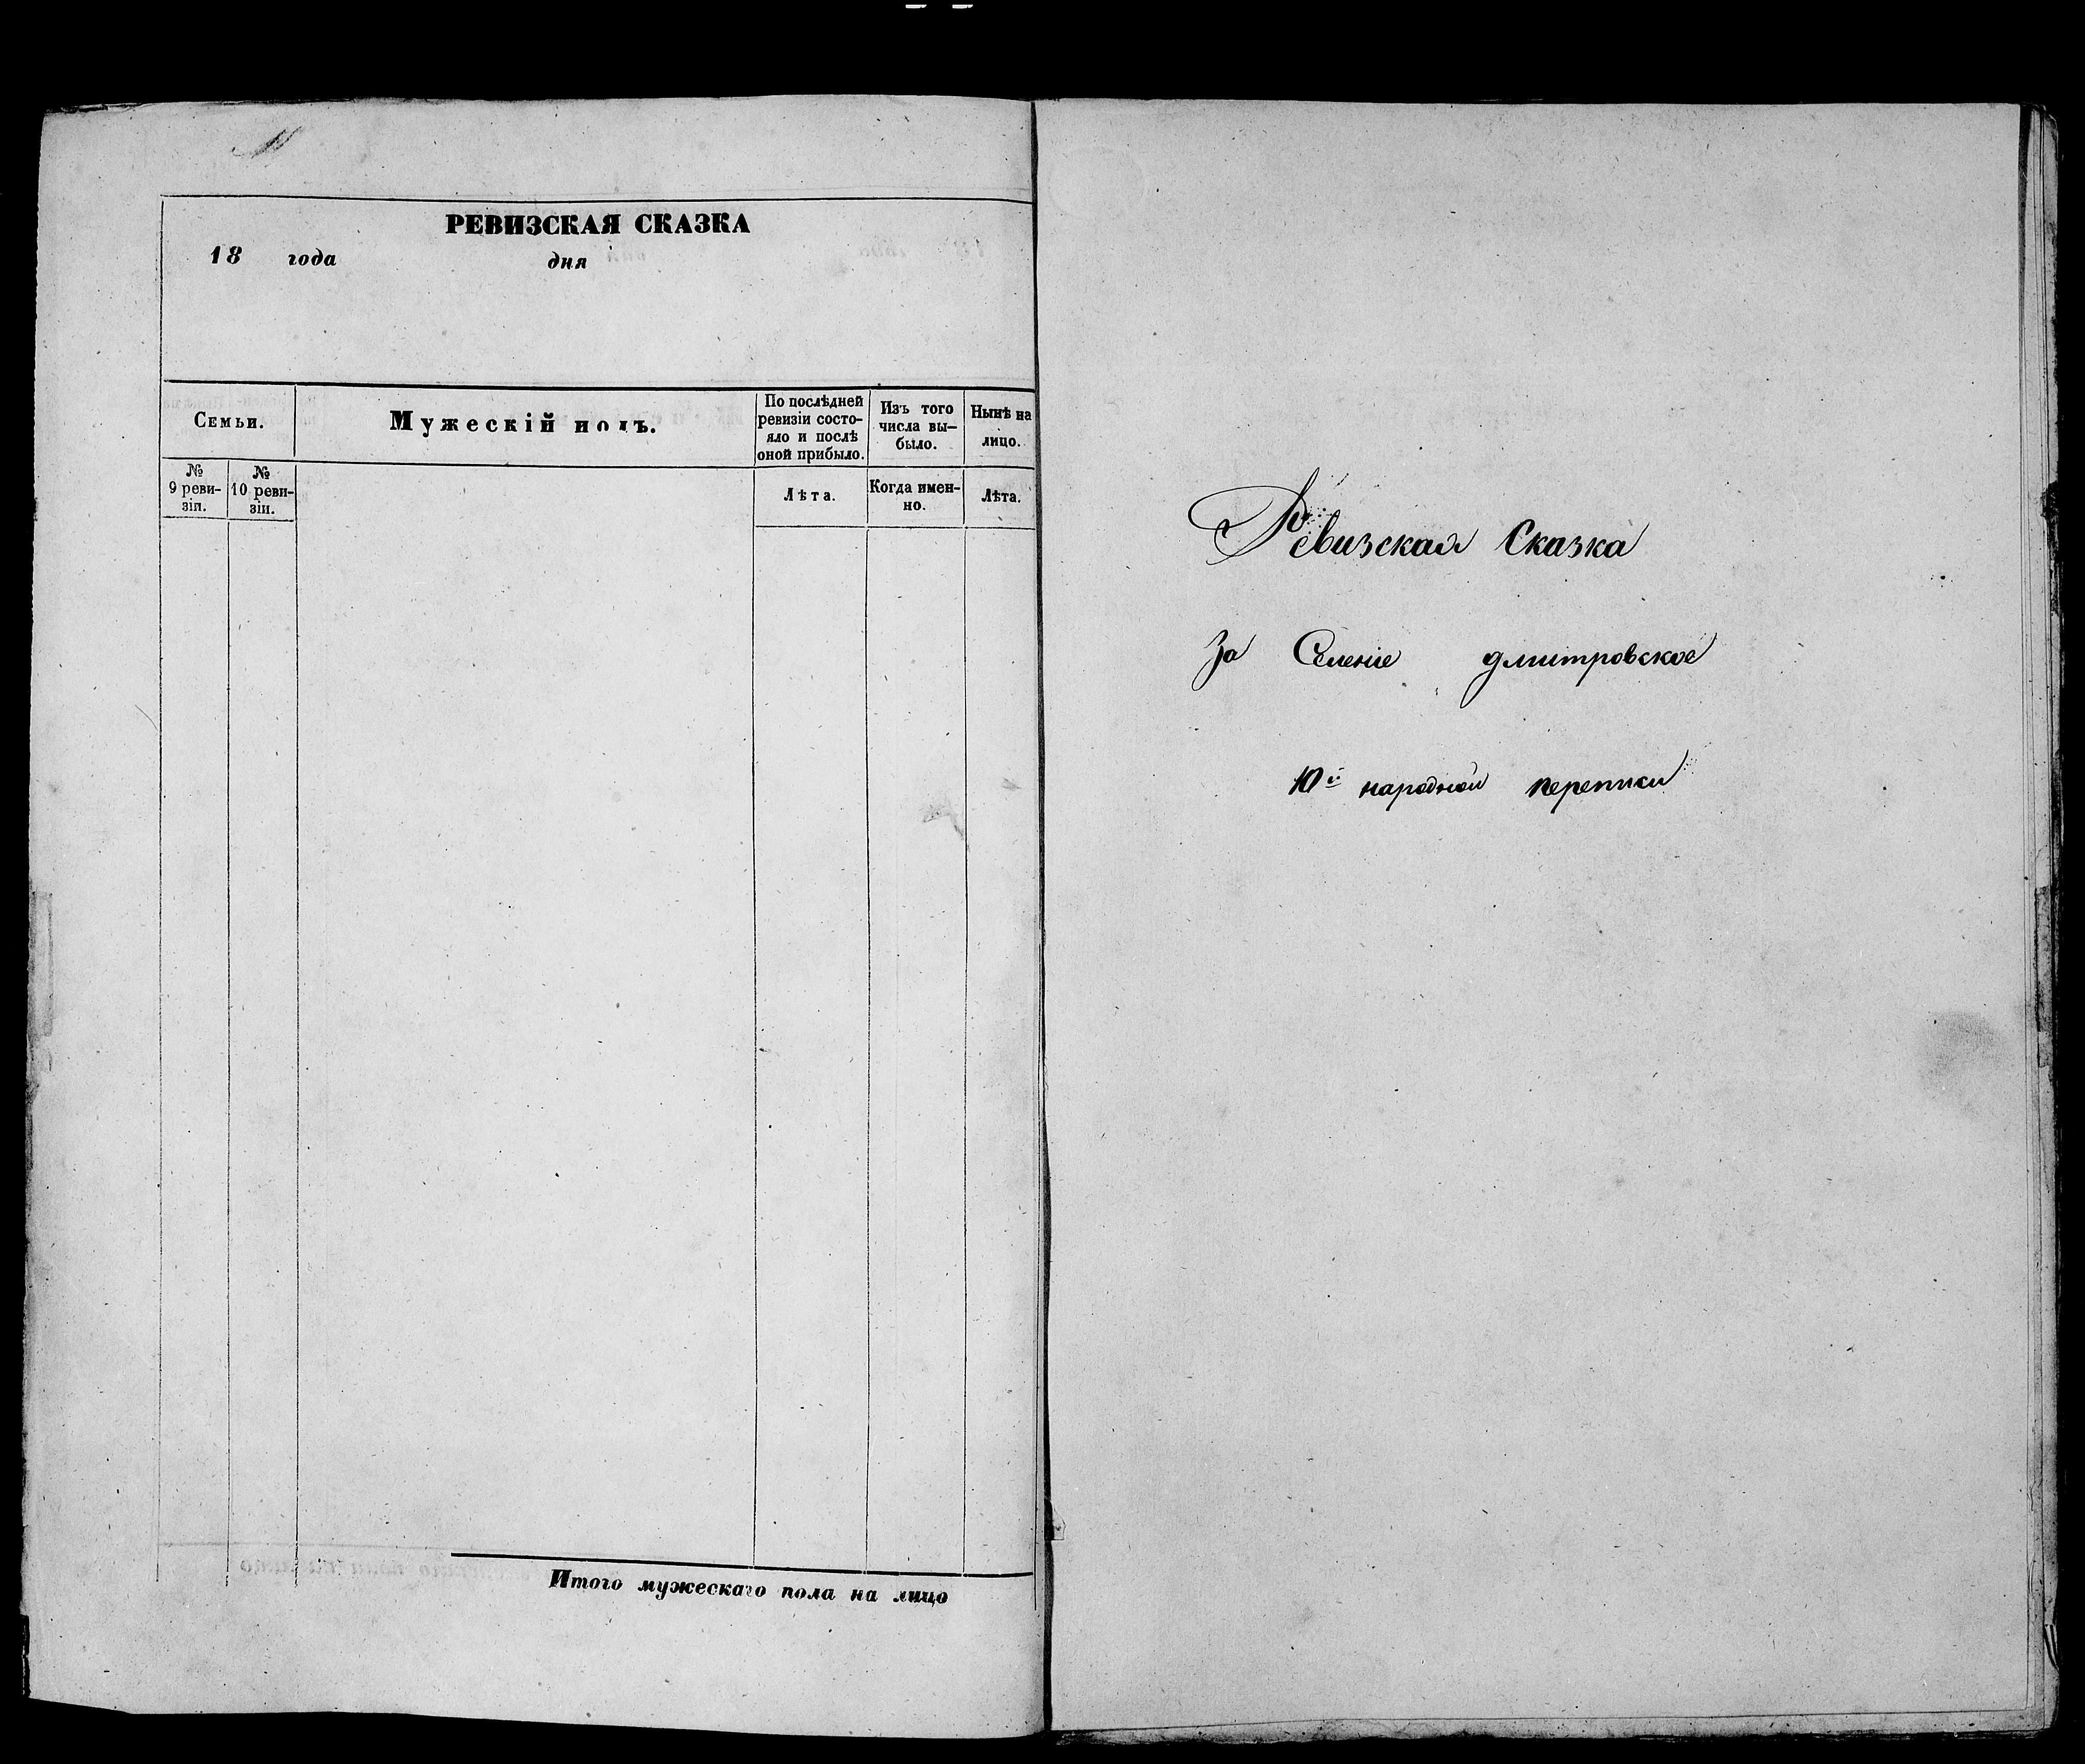 РЕВИЗСКАЯ СКАЗКА
18 года дня
Семьи.
Мужескій полъ.
По послѣдней
ревизіи состо-
яло и послѣ
оной прибыло.
Изъ того
числа вы-
было.
Нынѣ на
лицо.
№
9 реви-
зіи.
№
10 реви-
зіи.
Лѣта.
Когда имен-
но.
Лѣта.
Итого мужескаго пола на лицо
Ревизская Сказка
За Селеніе дмитровское
10й народной переписи